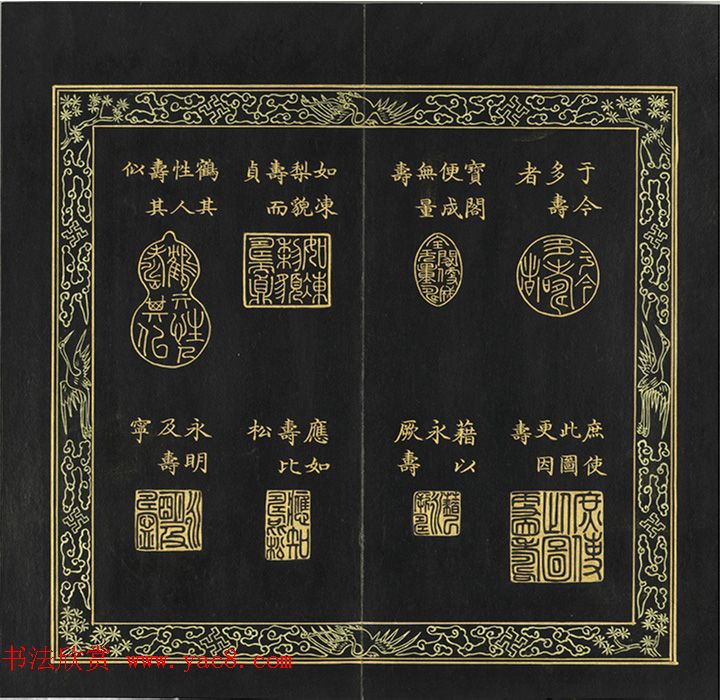 于今多壽者
寶閣便成無量壽
如凍梨貌壽而貞
鶴其性人壽其似
庶使此圖更因壽
藉以永厥壽
應如壽比松
永明及壽寧
书法欣赏 www.yac8.com